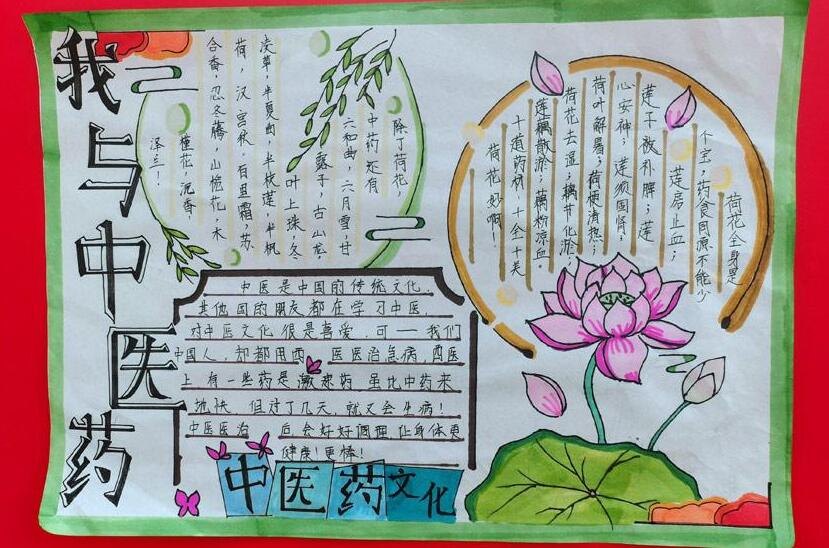 我与中医药
除了荷花，
中药还有
六和曲，六月雪，甘
露子，古山龙
叶上珠，冬
凌草，半夏曲，半枝莲，半帆
荷，汉宫秋，百里霜，苏
合香，忍冬藤，山栀花，木
槿花，沉香
泽兰！
荷花全身是
个宝，药食同源不能少
莲房止血；
莲子被补脾；莲
心安神；莲须固肾；
荷叶解暑；荷梗清热；
荷花去湿；藕节化淤；
莲藕散淤；藕粉凉血。
十道药材，十全十美
荷花妙啊！
中医是中国的传统文化，
其他国的朋友都在学习中医，
对中医文化很是喜爱，可一我们
中国人，却都用西 医医治急病，西医
上有一些药是激素药 虽比中药来
地快 但过了几天，就又会生病！
中医医治 后会好好调理 让身体更
健康！更棒！
中医药文化